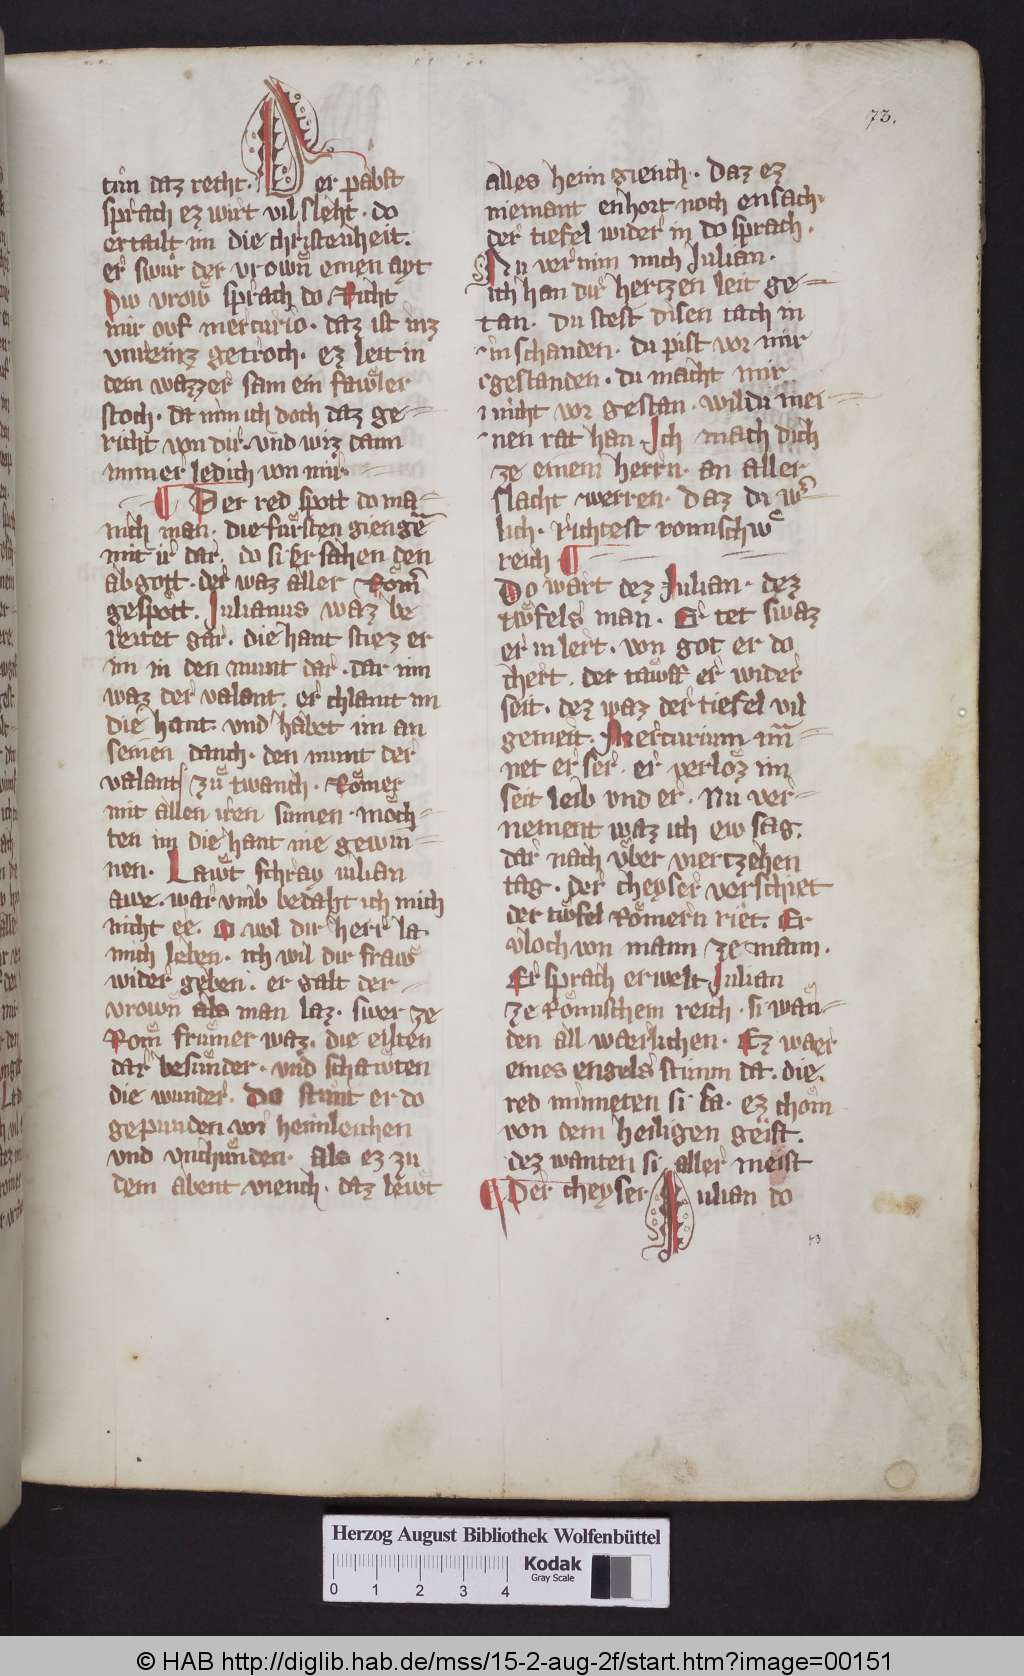 73.
tun daz recht. Der pabst
sprach ez wirt vil sleht. do
ertailt im die christenheit.
er swur der vrown einen ayt
Diw vrow sprach do Richt
mir ouf mercurio. daz ist inz
vnreinz getroch. ez leit in
dem wazzer sam ein fawler
stoch. da nim ich doch daz ge=
richt von dir. vnd wiz dann
nimmer ledich von mir.
Der red spott do ma=
nich man. die fursten gienge
mit ir dar. do si er sahen den
abgott. der waz aller Rom̄
gespott. Julianus waz be
reitet gar. die hant stiez er
im in den munt dar. dar inn
waz der valant. er chlamt im
die hant. vnd habt im an
seinen danch. den munt der
valant zu twanch. Romer
mit allen iren sinnen. moch=
ten im die hant nie gewin=
nen. Lawt schray iulian
awe. war vmb bedaht ich mich
nicht ee. wol dir herr la
mich leben. ich wil dir fraw
wider geben. er galt der
vrown als man laz. swer ze
Rom frumer waz. die eilten
dar besunder. vnd schawten
die wunder. Do stunt er do
gepunden vor heimleichen
vnd vnchunden. als ez zu
dem abent viench. daz lewt
alles heim giench. Daz ez
niemant enhort noch ensach.
der tiefel wider in do sprach.
Nu vernim mich Julian.
ich han dir hertzen leit ge=
tan. Du stest disen tach in
in schanden. du pist vor mir
gestanden. du macht mir
nicht vor gestan. wildu mei=
nen rat han. Ich mach dich
ze einem herrn. an aller
slacht werren. daz du w
lich. Richtest romisch
reich
Do wart dez Julian. dez
twfels man. Er tet swaz
er in lert. von got er do
chert. der tawff er wider
seit. dez waz der tiefel vil
gemeit. Mercurium m̄=
net er ser. er verloz im
seit leib vnd er. Nu ver=
nement waz ich ew sag.
dar nach vber viertzehen
tag. Der cheyser verschiet
der twfel Romern riet. Er
vloch von mann ze mann.
Er sprach erwelt Julian
ze Romischem reich. si wan=
den all waerlichen. Ez waer
eines engels stimm da. die
red minneten si sa. ez chom
von dem heiligen geist.
dez wanten si aller meist
Der cheyser Julian do
73
Herzog August Bibliothek Wolfenbüttel
0 1 2 3 4
Kodak
Gray Scale
© HAB http://diglib.hab.de/mss/15-2-aug-2f/start.htm?image=00151